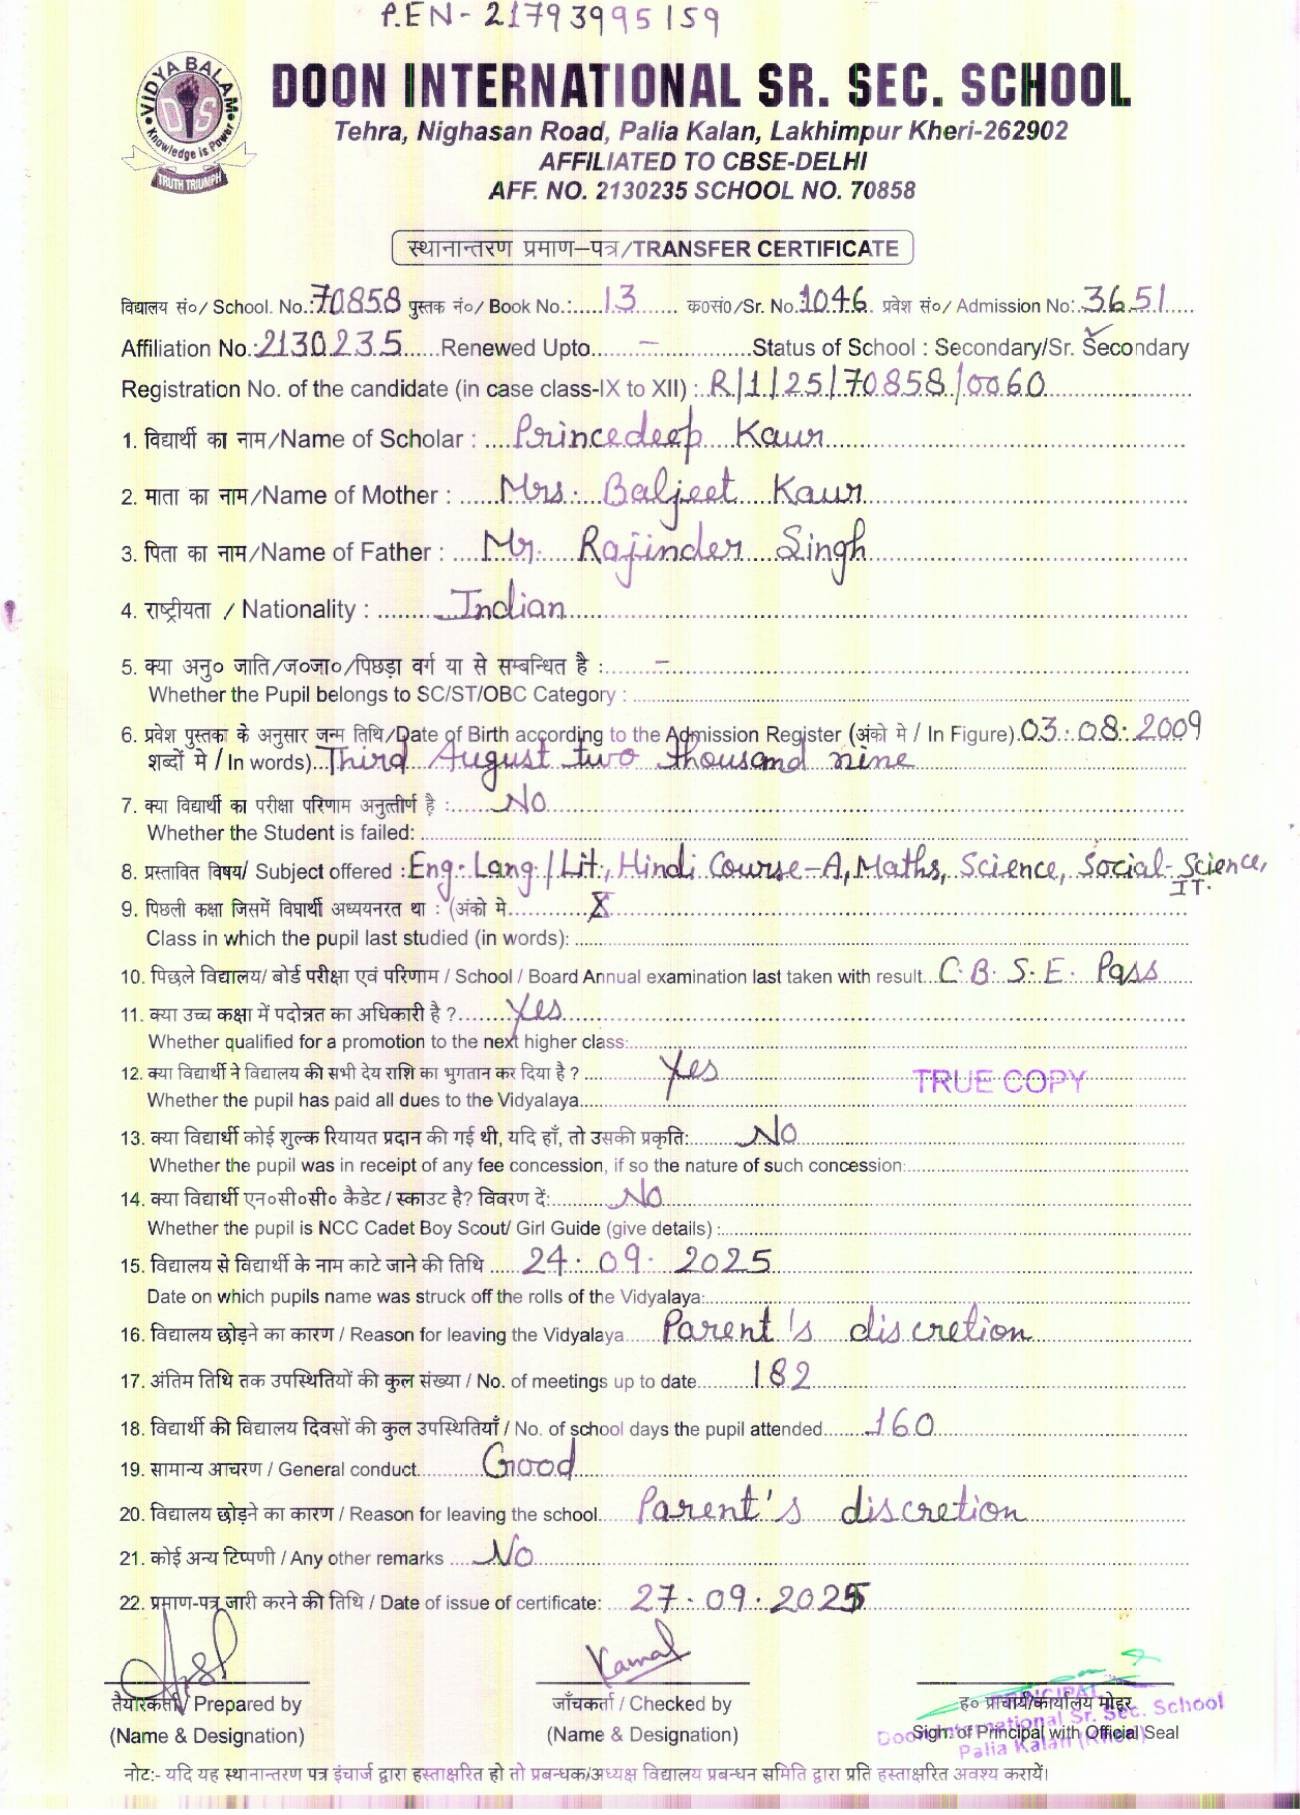 P.EN- 21793995159
VIDYA BALAM
DIS
Knowledge is Power
TRUTH TRIUMPH
DOON INTERNATIONAL SR. SEC. SCHOOL
Tehra, Nighasan Road, Palia Kalan, Lakhimpur Kheri-262902
AFFILIATED TO CBSE-DELHI
AFF. NO. 2130235 SCHOOL NO. 70858
स्थानान्तरण प्रमाण–पत्र/TRANSFER CERTIFICATE
विद्यालय सं०/ School. No.:70858 पुस्तक नं०/ Book No.:......13........ क०सं०/Sr. No.1046. प्रवेश सं०/ Admission No:.3651.....
Affiliation No.:2130235......Renewed Upto........–..............Status of School : Secondary/Sr. Secondary
Registration No. of the candidate (in case class-IX to XII) : R/1/25/70858/0060
1. विद्यार्थी का नाम/Name of Scholar : ....Princedeep Kaur
2. माता का नाम/Name of Mother : ......Mrs. Baljeet Kaur
3. पिता का नाम/Name of Father : ....Mr. Rajinder Singh
4. राष्ट्रीयता / Nationality : ........Indian
5. क्या अनु० जाति/ज०जा०/पिछड़ा वर्ग या से सम्बन्धित है :......–
Whether the Pupil belongs to SC/ST/OBC Category :
6. प्रवेश पुस्तका के अनुसार जन्म तिथि/Date of Birth according to the Admission Register (अंको मे / In Figure).03.08.2009
शब्दों मे / In words)..Third August two thousand nine
7. क्या विद्यार्थी का परीक्षा परिणाम अनुत्तीर्ण है :......No
Whether the Student is failed:
8. प्रस्तावित विषय/ Subject offered :Eng. Lang./Lit., Hindi Course-A, Maths, Science, Social-Science,
IT.
9. पिछली कक्षा जिसमें विघार्थी अध्ययनरत था : (अंको मे..........X
Class in which the pupil last studied (in words):
10. पिछले विद्यालय/ बोर्ड परीक्षा एवं परिणाम / School / Board Annual examination last taken with result...C.B.S.E. Pass
11. क्या उच्च कक्षा में पदोन्नत का अधिकारी है ?.......Yes
Whether qualified for a promotion to the next higher class:
12. क्या विद्यार्थी ने विद्यालय की सभी देय राशि का भुगतान कर दिया है ? .......Yes
TRUE COPY
Whether the pupil has paid all dues to the Vidyalaya
13. क्या विद्यार्थी कोई शुल्क रियायत प्रदान की गई थी, यदि हाँ, तो उसकी प्रकृति:.......No
Whether the pupil was in receipt of any fee concession, if so the nature of such concession:
14. क्या विद्यार्थी एन०सी०सी० कैडेट / स्काउट है? विवरण दें:..........No
Whether the pupil is NCC Cadet Boy Scout/ Girl Guide (give details) :
15. विद्यालय से विद्यार्थी के नाम काटे जाने की तिथि .....24.09.2025
Date on which pupils name was struck off the rolls of the Vidyalaya:
16. विद्यालय छोड़ने का कारण / Reason for leaving the Vidyalaya......Parent's discretion
17. अंतिम तिथि तक उपस्थितियों की कुल संख्या / No. of meetings up to date.........182
18. विद्यार्थी की विद्यालय दिवसों की कुल उपस्थितियाँ / No. of school days the pupil attended........160
19. सामान्य आचरण / General conduct..........Good
20. विद्यालय छोड़ने का कारण / Reason for leaving the school......Parent's discretion
21. कोई अन्य टिप्पणी / Any other remarks ....No
22. प्रमाण-पत्र जारी करने की तिथि / Date of issue of certificate: ....27.09.2025
Kamal
तैयारकर्ता/ Prepared by जाँचकर्ता / Checked by ह० प्राचार्य/कार्यालय मोहर
PRINCIPAL
(Name & Designation) (Name & Designation) Sign. of Principal with Official Seal
Doon International Sr. Sec. School
Palia Kalan (Kheri)
नोट:- यदि यह स्थानान्तरण पत्र इंचार्ज द्वारा हस्ताक्षरित हो तो प्रबन्धक/अध्यक्ष विद्यालय प्रबन्धन समिति द्वारा प्रति हस्ताक्षरित अवश्य करायें।